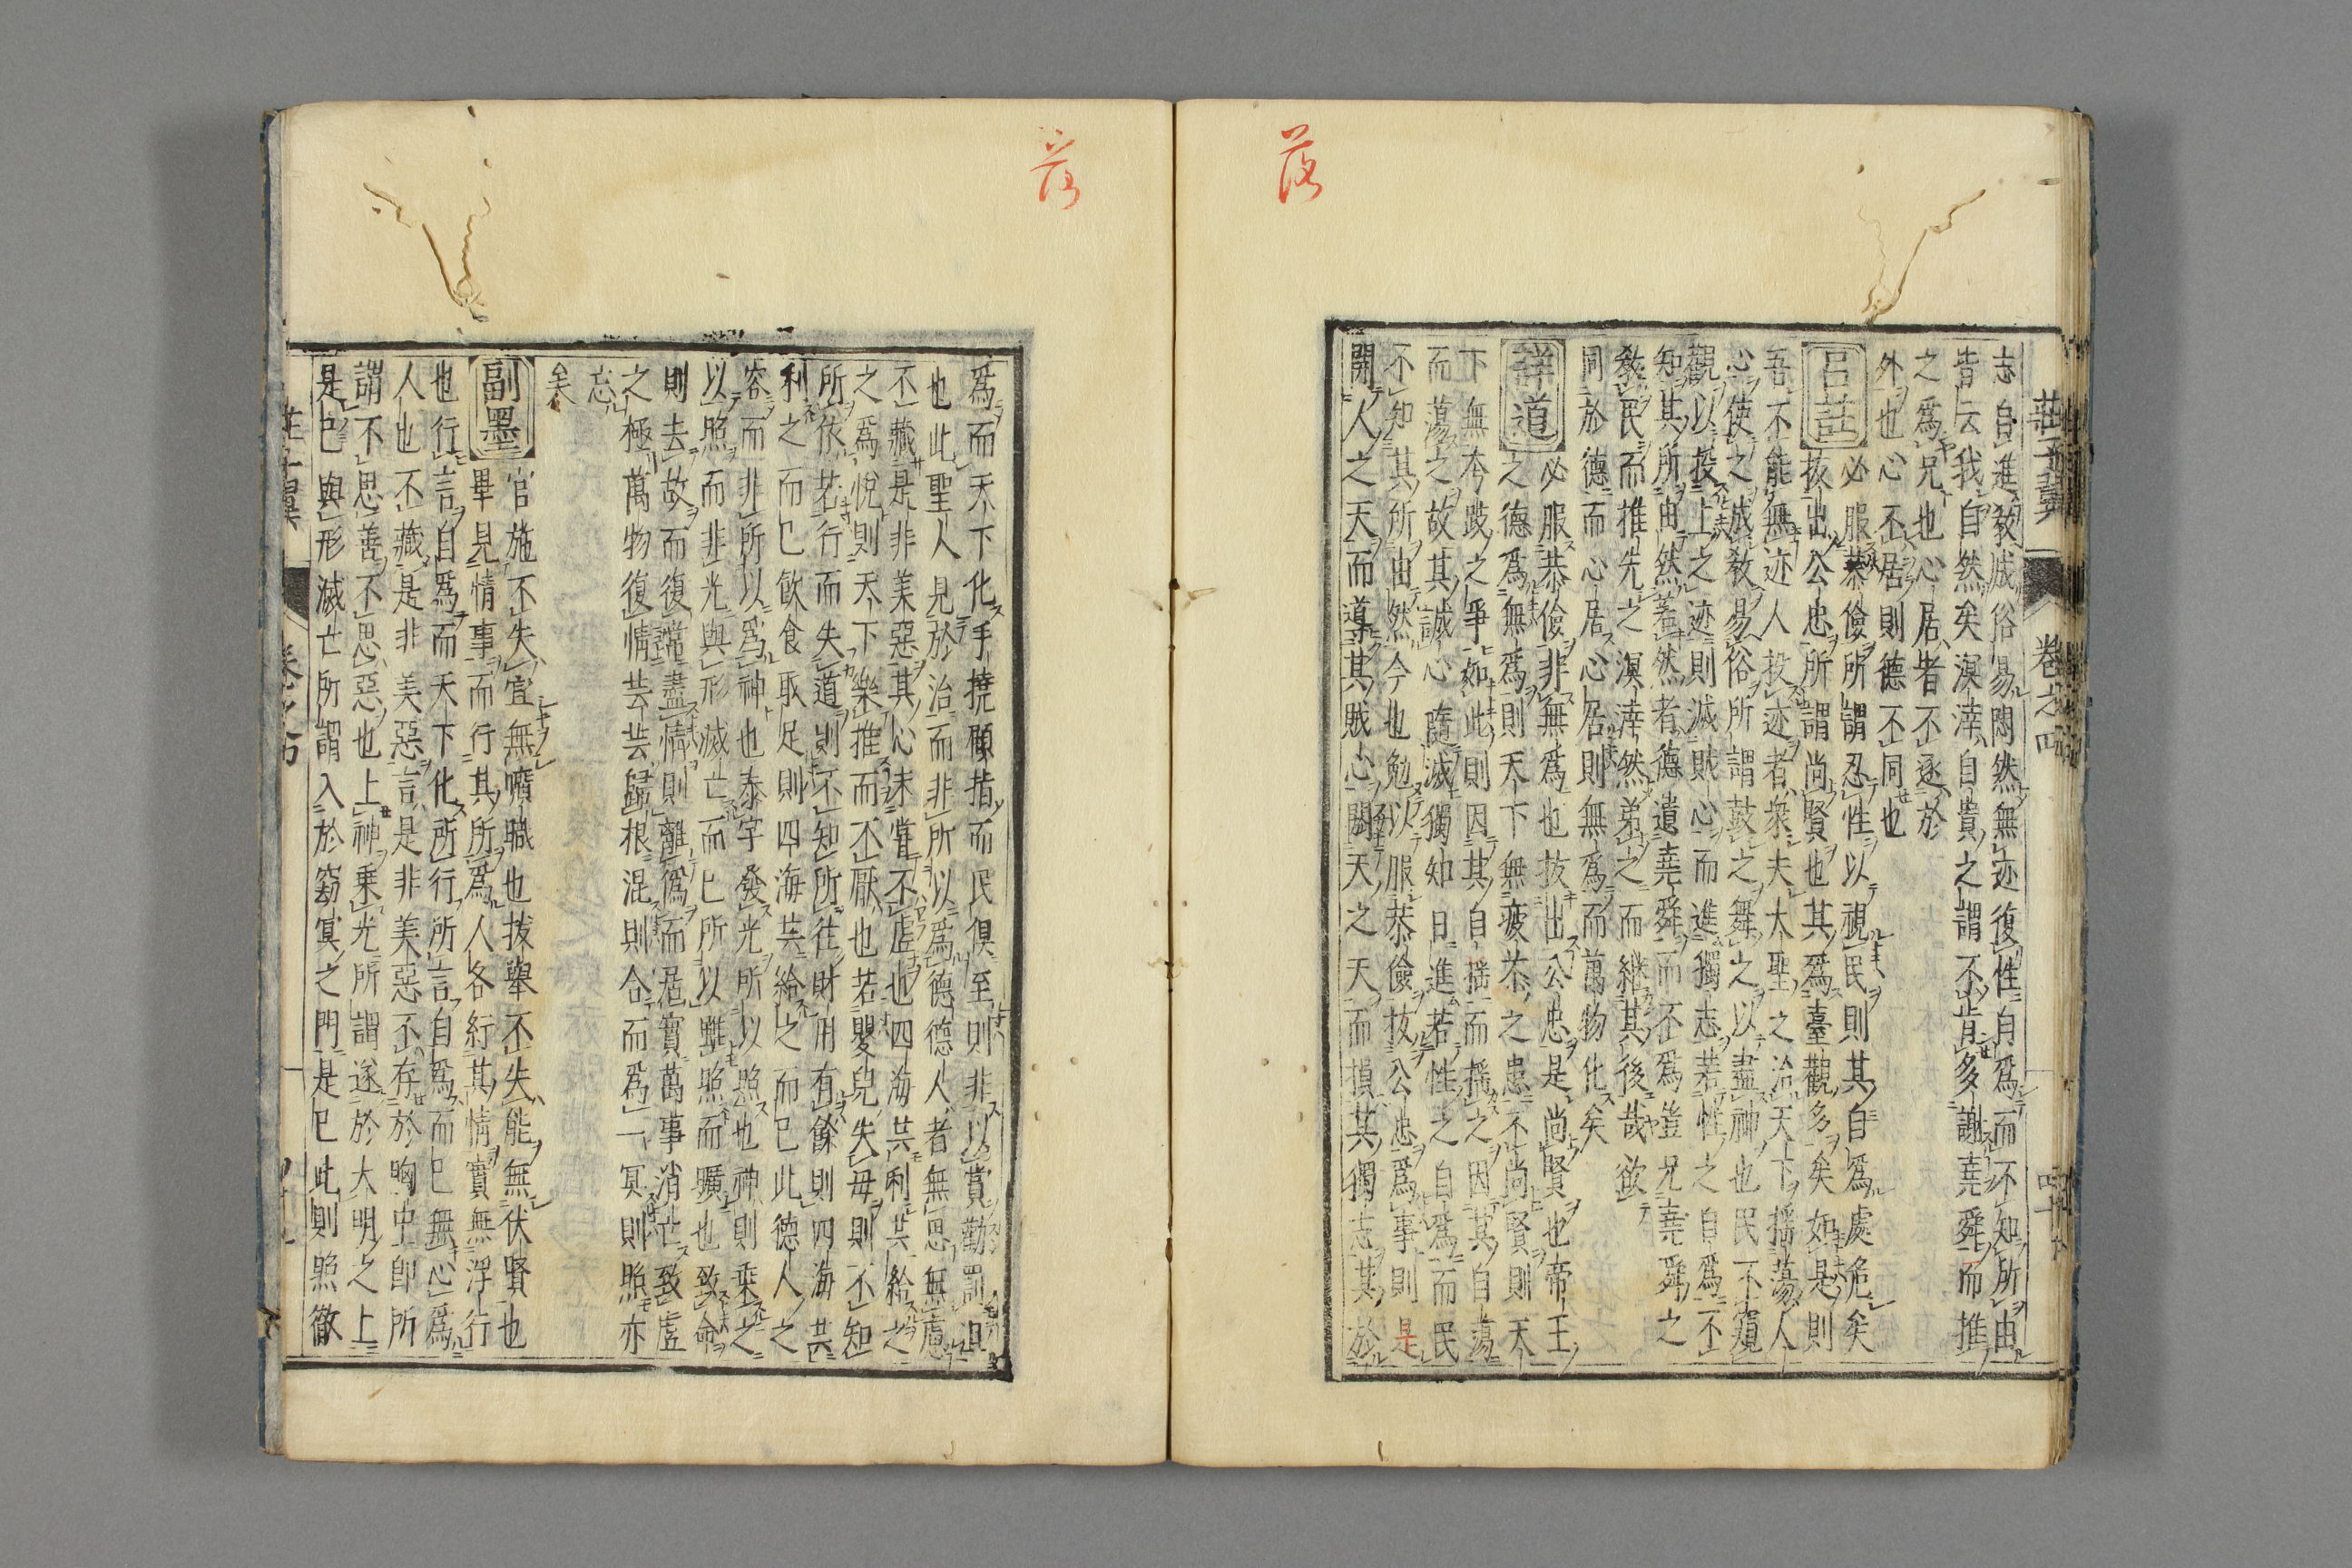 落
莊子翼 卷之四
志自進教成俗易悶然無迹復性自爲而不知所由
皆云我自然矣溟涬自貴之謂不肯多謝堯舜而推
之爲兄也心居者不逐於
外也心不居則德不同也
呂註 必服恭儉所謂忍性以視民則其自爲處危矣
拔出公忠所謂尚賢也其爲臺觀多矣如是則
吾不能無迹人投迹者衆夫大聖之治天下搖蕩人
心使之成教易俗所謂鼓之舞之以盡神也民不窺
觀以投上之迹則滅賊心而進獨志若性之自爲不
知其所由然若然者德遺堯舜而不爲豈兄堯舜之
教民而推先之溟涬然弟之而繼其後哉欲
同於德而心居心居則無爲而萬物化矣
詳道 必服恭儉非無爲也拔出公忠是尚賢也帝王
之德爲無爲則天下無疲苶之患不尚賢則天
下無夲跂之爭如此則因其自搖而搖之因其自蕩
而蕩之故其誠心隨滅獨知日進若性之自爲而民
不知其所由然今也勉以服恭儉拔公忠爲事則是
開人之天而導其賊心閼天之天而損其獨志其於
落
爲而天下化手撓顧指而民俱至則非以賞勸罰沮
也此聖人見於治而非所以爲德德人者無思無慮
不藏是非美惡其心未嘗不虛也四海共利共給之
之爲悅則天下樂推而不厭也若嬰兒失母則不知
所依若行而失道則不知所往財用有餘則四海共
利之而巳飲食取足則四海共給之而巳此德人之
容而非所以爲神也泰宇發光所以照也神則乘之
以照而非光與形滅亡而巳所以雖照而曠也致命
則去故而復常盡情則離僞而居實萬事消亡致虛
之極萬物復情芸芸歸根混則合而爲一冥則照亦
忘
矣
副墨 官施不失宜無曠職也拔舉不失能無伏賢也
畢見情事而行其所爲人各行其情實無浮行
也行言自爲而天下化所行所言自爲而巳無心爲
人也不藏是非美惡言是非美惡不存於胸中卽所
謂不思善不思惡也上神乘光所謂遂於大明之上
是巳與形滅亡所謂入於窈冥之門是巳此則照徹